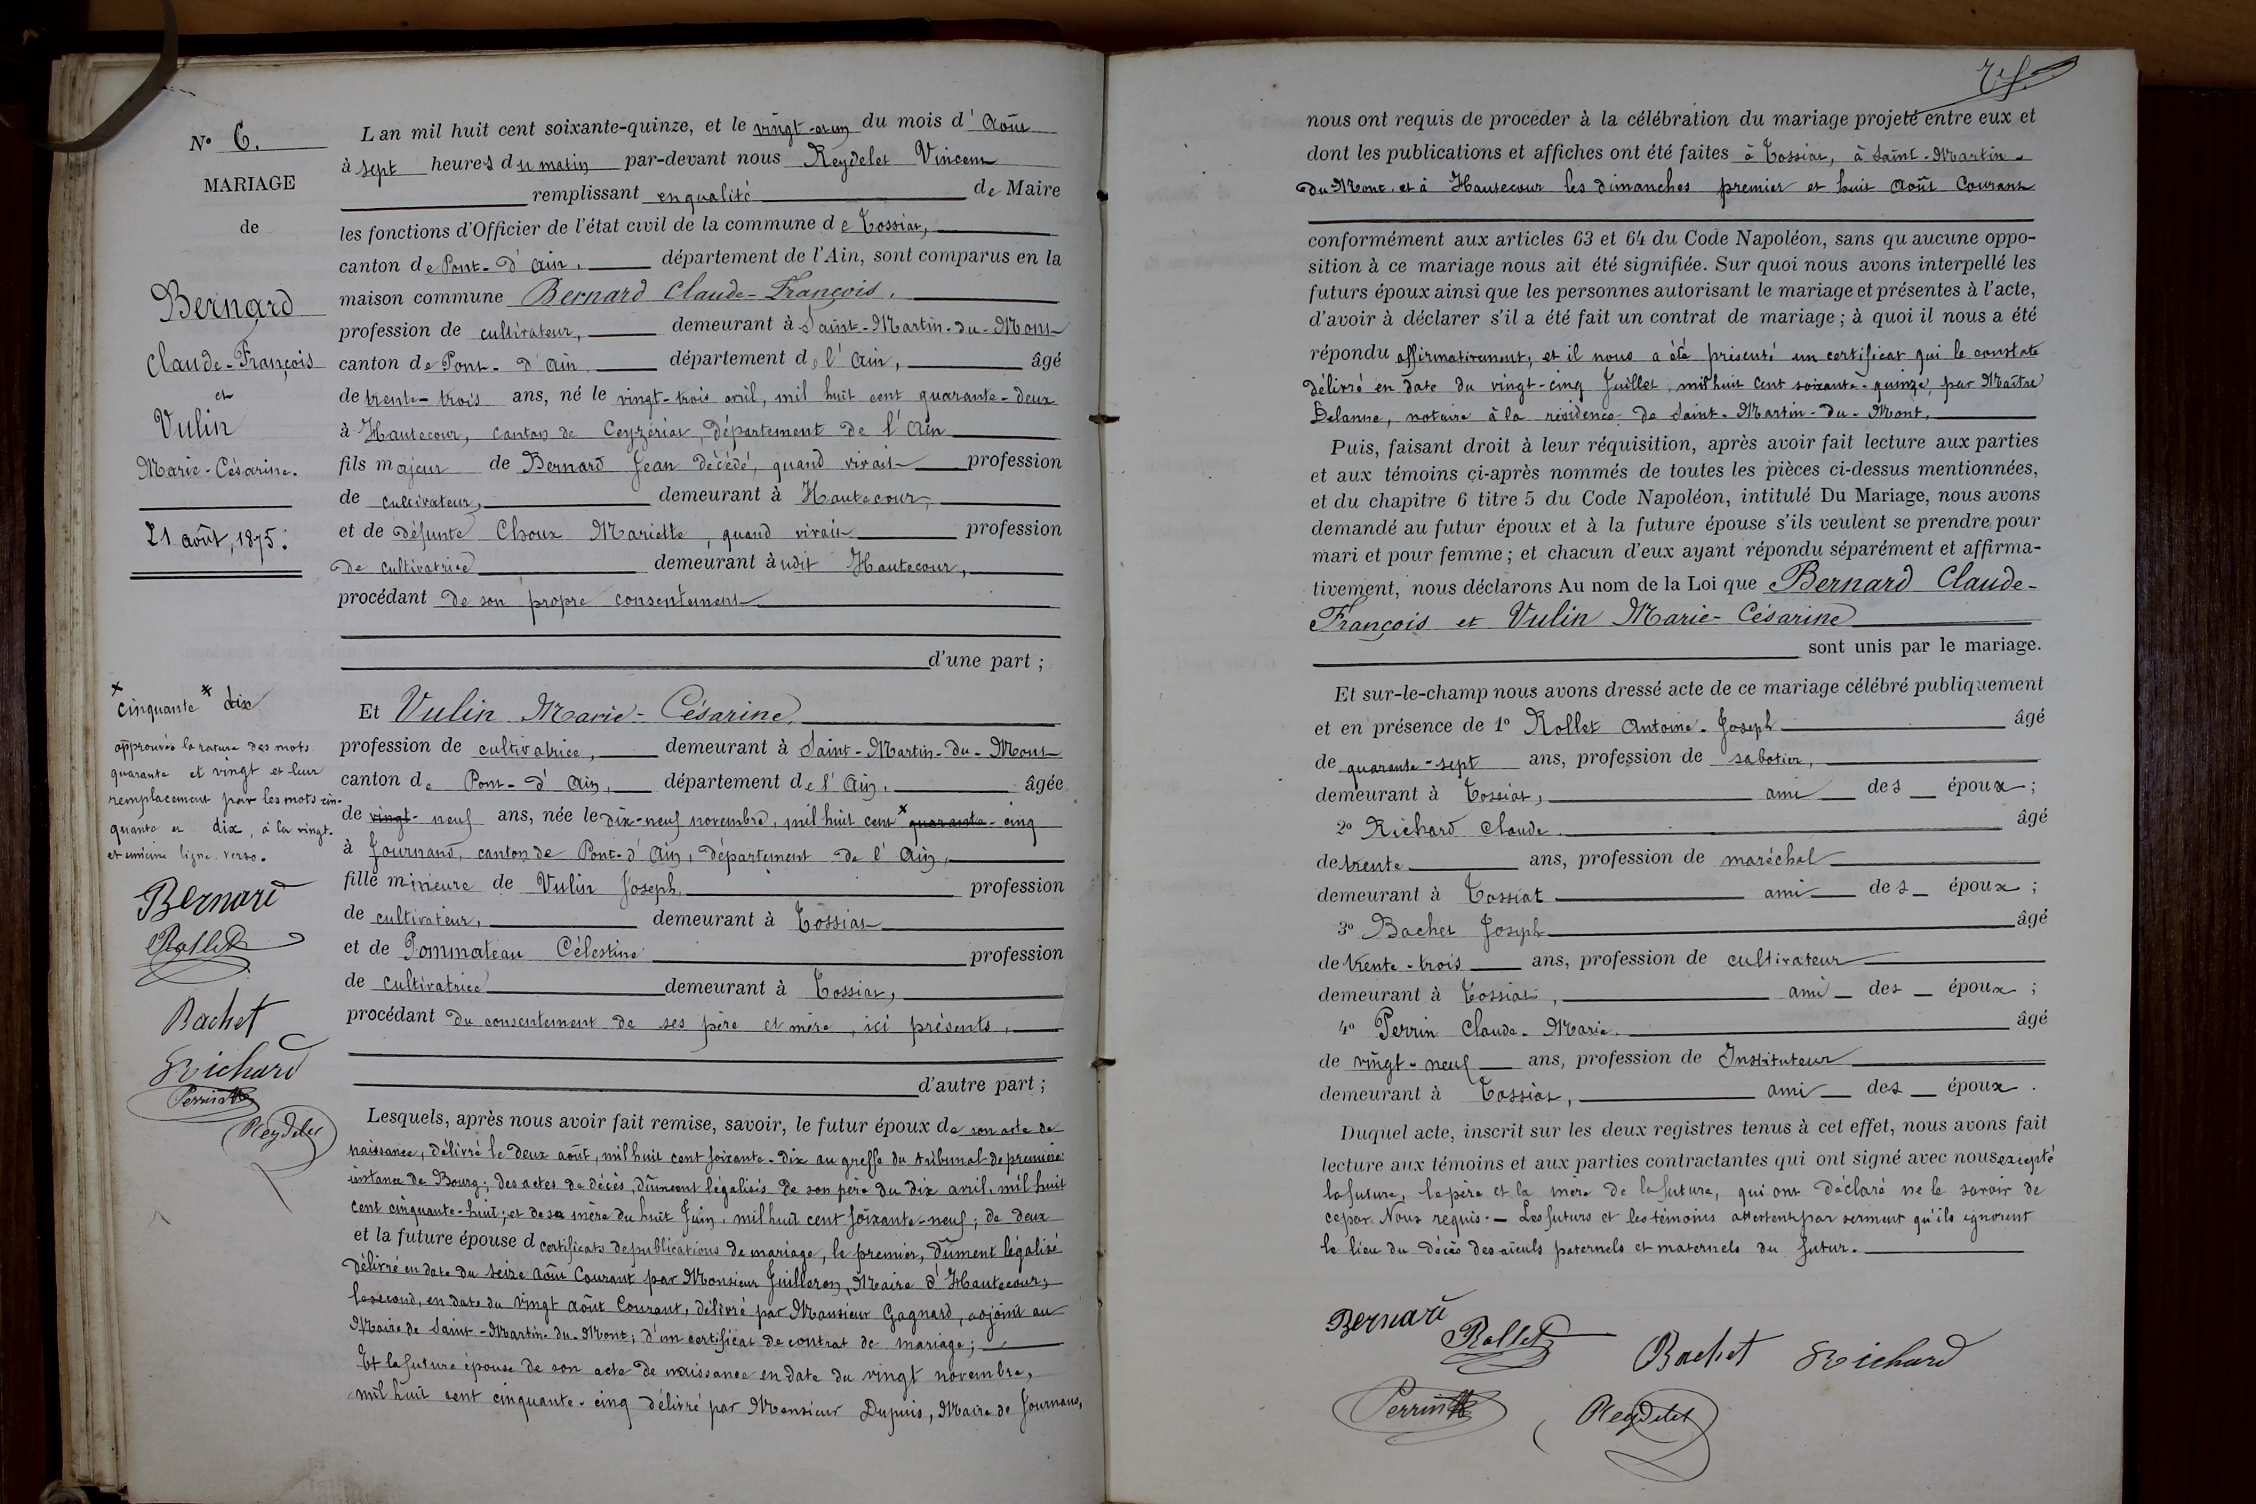 N° 6.
MARIAGE
de
Bernard
Claude-François
et
Vulin
Marie-Césarine.
21 août, 1875.
× cinquante * dix
approuvés la rature des mots
quarante et vingt et leur
remplacement par les mots cin-
quante et dix, à la vingt-
et unième ligne verso.
Bernard
Rollet
Bachet
Richard
Perrin
Reydelet
L'an mil huit cent soixante-quinze, et le vingt-et-un du mois d'Août
à sept heures du matin par-devant nous Reydelet Vincent
remplissant en qualité de Maire
les fonctions d'Officier de l'état civil de la commune de Tossiat,
canton de Pont-d'Ain, département de l'Ain, sont comparus en la
maison commune Bernard Claude-François,
profession de cultivateur, demeurant à Saint-Martin-du-Mont
canton de Pont-d'Ain département de l'Ain, âgé
de trente-trois ans, né le vingt-trois avril, mil huit cent quarante-deux
à Hautecour, canton de Ceyzériat, département de l'Ain
fils majeur de Bernard Jean décédé, quand vivait profession
de cultivateur, demeurant à Hautecour,
et de défunte Choux Mariette, quand vivait profession
de cultivatrice demeurant à udit Hautecour,
procédant de son propre consentement
d'une part ;
Et Vulin Marie-Césarine,
profession de cultivatrice, demeurant à Saint-Martin-du-Mont
canton de Pont-d'Ain, département de l'Ain, âgée
de vingt-neuf ans, née le dix-neuf novembre, mil huit cent × quarante-cinq
à Journans, canton de Pont-d'Ain, département de l'Ain,
fille mineure de Vulin Joseph, profession
de cultivateur, demeurant à Tossiat
et de Pommateau Célestine profession
de cultivatrice demeurant à Tossiat,
procédant du consentement de ses père et mère, ici présents,
d'autre part ;
Lesquels, après nous avoir fait remise, savoir, le futur époux de son acte de
naissance, délivré le deux août, mil huit cent soixante-dix au greffe du tribunal de première
instance de Bourg ; des actes de décès, dûment légalisés de son père du dix avril, mil huit
cent cinquante-huit ; et de sa mère du huit Juin, mil huit cent soixante-neuf ; de deux
et la future épouse d certificats de publications de mariage, le premier, dûment légalisé
délivré en date du seize Août Courant par Monsieur Juilleron, Maire d'Hautecour,
le second, en date du vingt Août Courant, délivré par Monsieur Gagnard, adjoint au
Maire de Saint-Martin-du-Mont ; d'un certificat de contrat de mariage ;
Et la future épouse de son acte de naissance en date du vingt novembre,
mil huit cent cinquante-cinq délivré par Monsieur Dupuis, Maire de Journans,
nous ont requis de procéder à la célébration du mariage projeté entre eux et
dont les publications et affiches ont été faites à Tossiat, à Saint-Martin-
du-Mont et à Hautecour les dimanches premier et huit Août Courant
conformément aux articles 63 et 64 du Code Napoléon, sans qu'aucune oppo-
sition à ce mariage nous ait été signifiée. Sur quoi nous avons interpellé les
futurs époux ainsi que les personnes autorisant le mariage et présentes à l'acte,
d'avoir à déclarer s'il a été fait un contrat de mariage ; à quoi il nous a été
répondu affirmativement, et il nous a été présenté un certificat qui le constate
délivré en date du vingt-cinq Juillet, mil huit cent soixante-quinze, par Maître
Delanne, notaire à la résidence de Saint-Martin-du-Mont,
Puis, faisant droit à leur réquisition, après avoir fait lecture aux parties
et aux témoins ci-après nommés de toutes les pièces ci-dessus mentionnées,
et du chapitre 6 titre 5 du Code Napoléon, intitulé Du Mariage, nous avons
demandé au futur époux et à la future épouse s'ils veulent se prendre pour
mari et pour femme ; et chacun d'eux ayant répondu séparément et affirma-
tivement, nous déclarons Au nom de la Loi que Bernard Claude-
François et Vulin Marie-Césarine
sont unis par le mariage.
Et sur-le-champ nous avons dressé acte de ce mariage célébré publiquement
et en présence de 1° Rollet Antoine-Joseph âgé
de quarante-sept ans, profession de sabotier,
demeurant à Tossiat, ami des époux ;
2° Richard Claude âgé
de trente ans, profession de maréchal
demeurant à Tossiat ami des époux ;
3° Bachet Joseph âgé
de trente-trois ans, profession de cultivateur
demeurant à Tossiat, ami des époux ;
4° Perrin Claude-Marie âgé
de vingt-neuf ans, profession de Instituteur
demeurant à Tossiat, ami des époux.
Duquel acte, inscrit sur les deux registres tenus à cet effet, nous avons fait
lecture aux témoins et aux parties contractantes qui ont signé avec nous excepté
la future, le père et la mère de la future, qui ont déclaré ne le savoir de
ce par Nous requis. — Les futurs et les témoins attestent par serment qu'ils ignorent
le lieu du décès des aïeuls paternels et maternels du futur.
Bernard
Rollet
Bachet Richard
Perrin
Reydelet